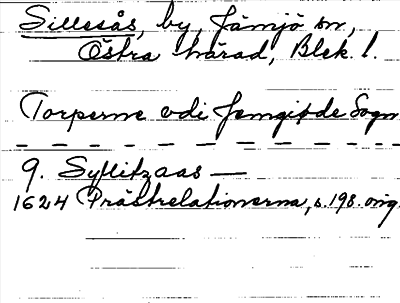 Sillesås, by, Jämjö sn,
Östra härad, Blek. l.
Torperne udi Jemgiøde Sogn
9. Syllitzaas —
1624 Prästrelationerna, s. 198. orig.